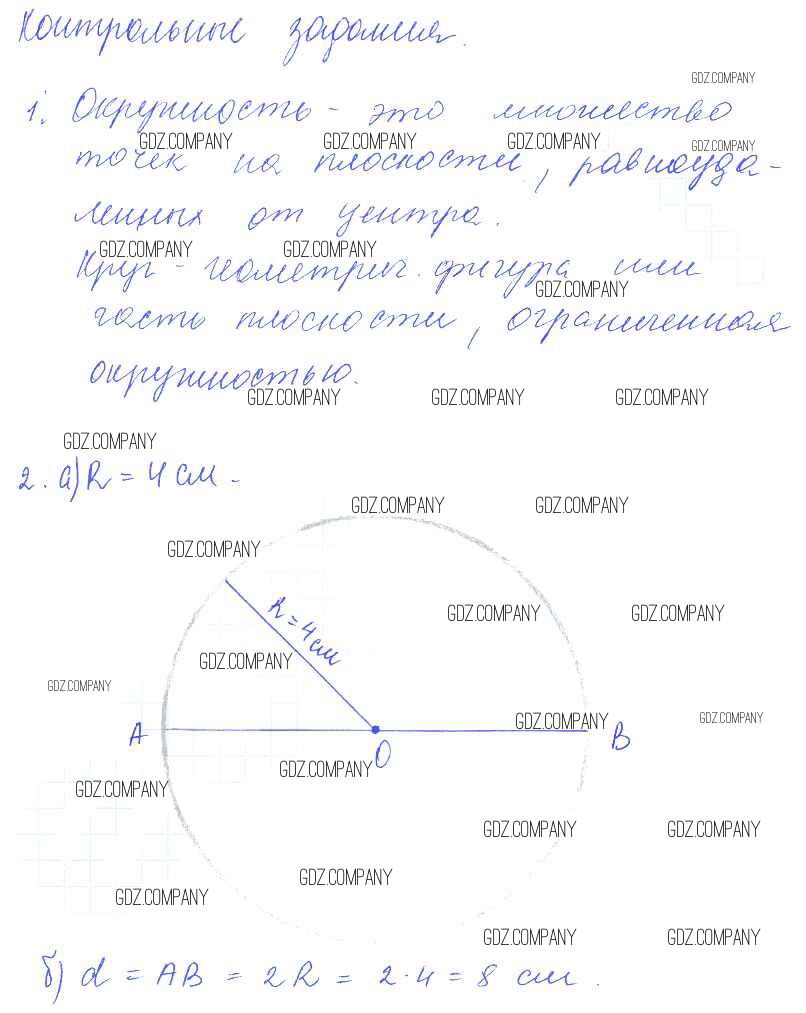 Контрольные задания.
GDZ.COMPANY
1. Окружность - это множество
GDZ.COMPANY GDZ.COMPANY GDZ.COMPANY GDZ.COMPANY
точек на плоскости, равноуда-
ленных от центра.
GDZ.COMPANY GDZ.COMPANY
Круг - геометрич. фигура или
GDZ.COMPANY
часть плоскости, ограниченная
окружностью.
GDZ.COMPANY GDZ.COMPANY GDZ.COMPANY
GDZ.COMPANY
2. а) R = 4 см.
GDZ.COMPANY GDZ.COMPANY
GDZ.COMPANY
R = 4 см
GDZ.COMPANY GDZ.COMPANY
GDZ.COMPANY
GDZ.COMPANY
GDZ.COMPANY GDZ.COMPANY
A O B
GDZ.COMPANY
GDZ.COMPANY
GDZ.COMPANY GDZ.COMPANY
GDZ.COMPANY
GDZ.COMPANY
GDZ.COMPANY GDZ.COMPANY
б) d = AB = 2R = 2 · 4 = 8 см.